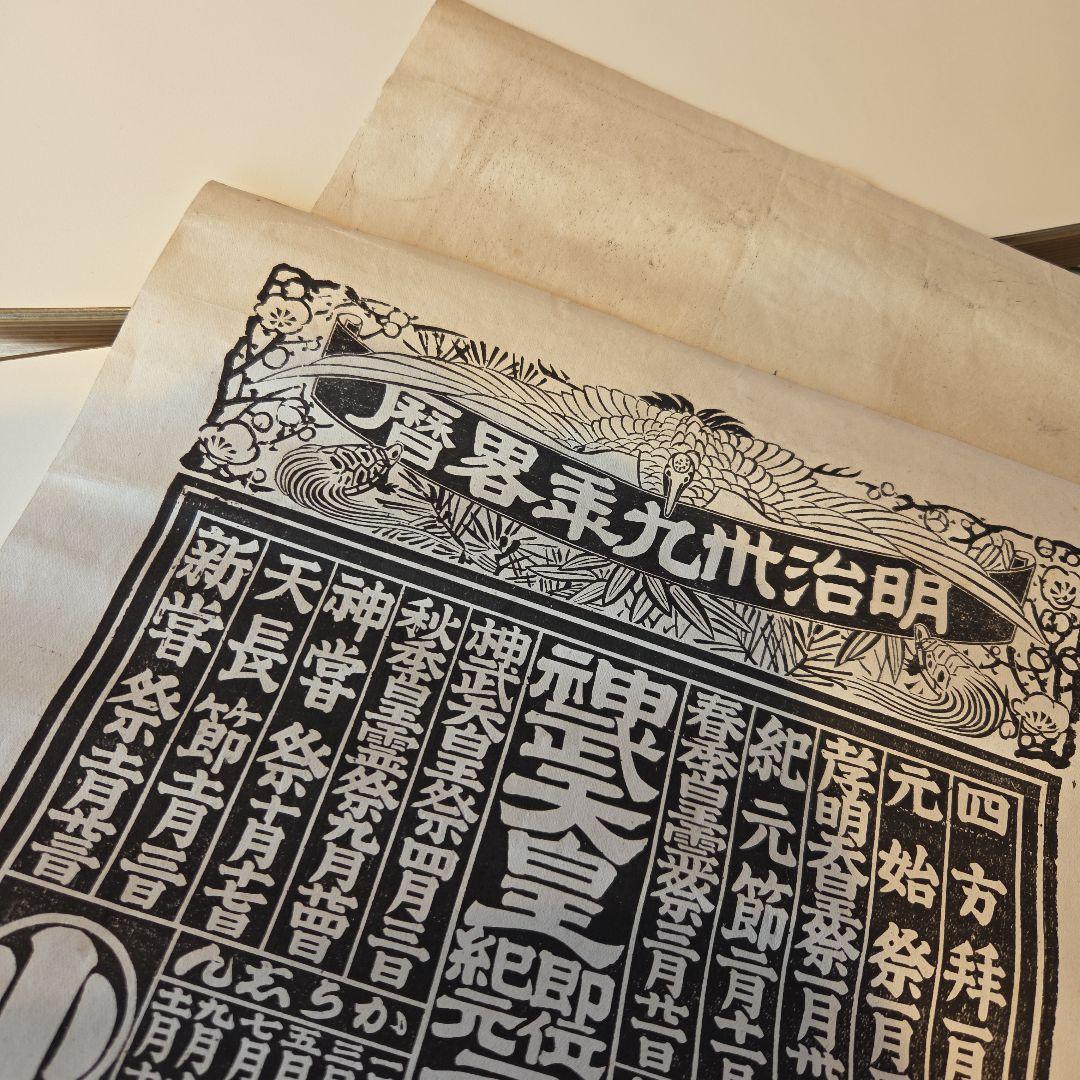 明治卅九年畧暦
四方拝一月
元始祭一月
孝明天皇祭一月卅
紀元節二月十一日
春季皇霊祭三月廿一日
神武天皇即位紀元二
神武天皇祭四月三日
秋季皇霊祭九月廿四日
神嘗祭十月十七日
天長節十一月三日
新嘗祭十一月廿三日
かうしん
一
三
五月
七月
九月
十一月